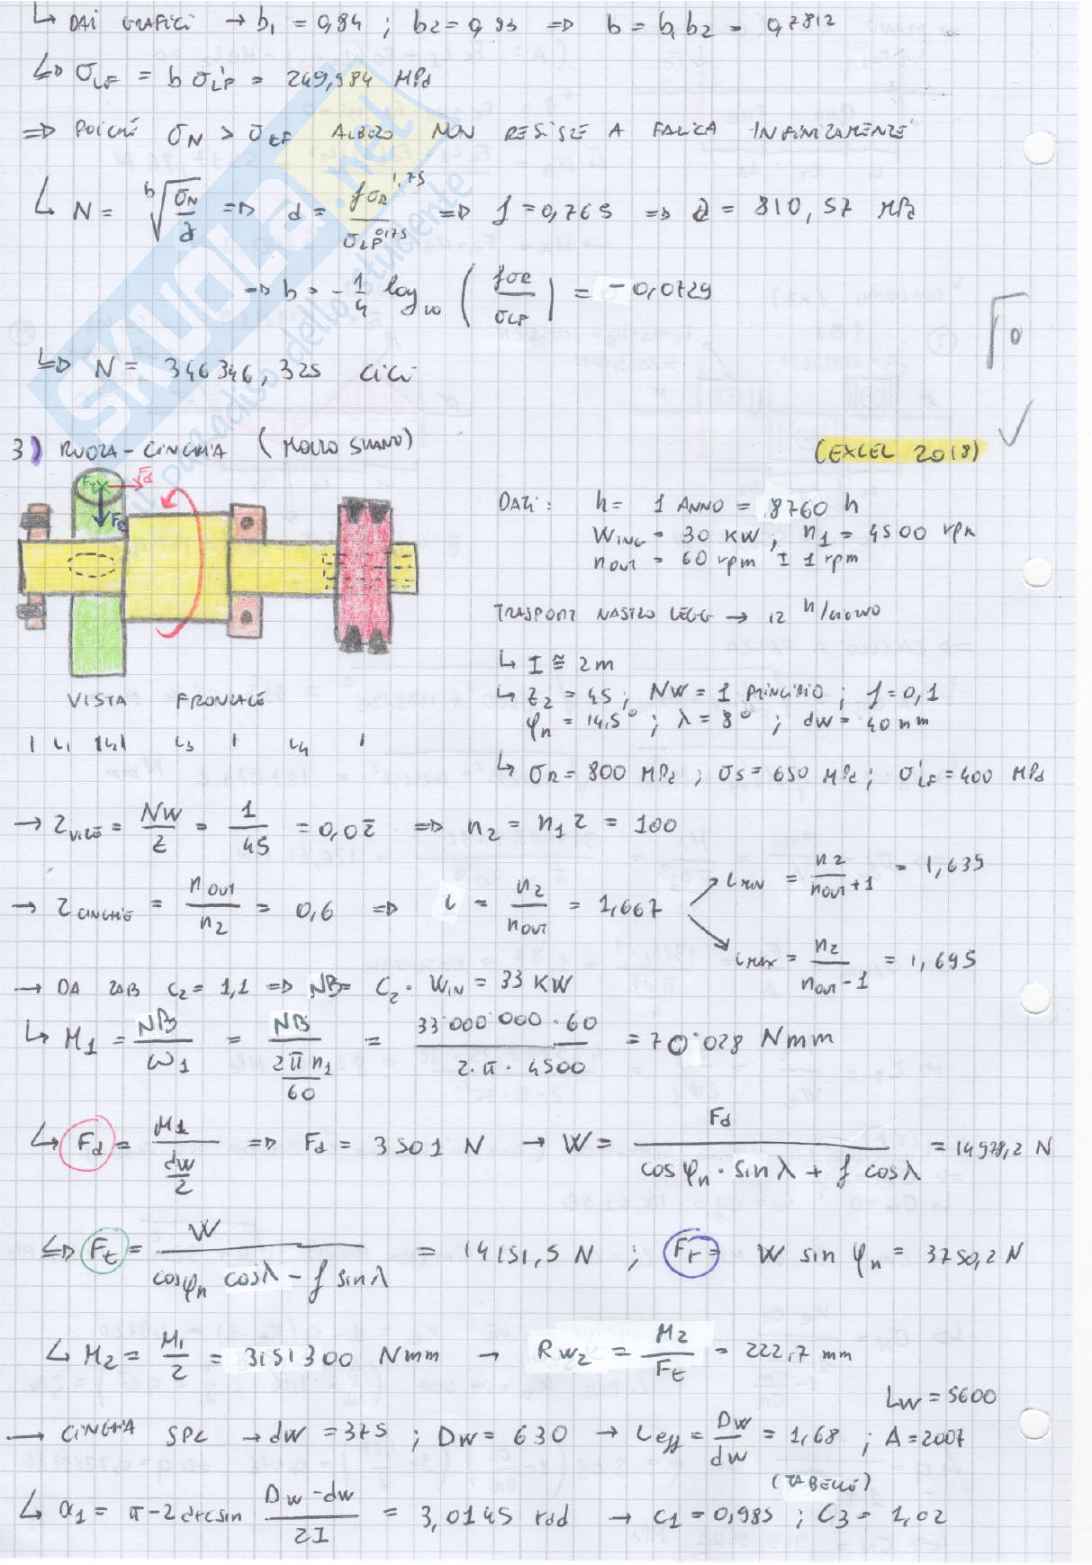 ↳ DAI GRAFICI → b₁ = 0,84 ; b₂ = 0,93 ⇒ b = b₁b₂ = 0,7812
↳ σLF = b σ'LF = 249,984 MPa
⇒ POICHÉ σN > σLF ALBERO NON RESISTE A FATICA INFINITAMENTE
↳ N = ᵇ√(σN/a) ⇒ a = fσR^1,75 / σLF^0,75 ⇒ f = 0,765 ⇒ a = 810,57 MPa
⇒ b = -1/4 log₁₀ (fσR / σLF) = -0,0729
↳ N = 346346,325 CICLI
3) RUOTA-CINGHIA (MOLTO STRANO)
(EXCEL 2018)
Fa
Fr
DATI: h = 1 ANNO = 8760 h
WING = 30 KW, n₁ = 4500 rpm
nOUT = 60 rpm ± 1 rpm
TRASPORT NASTRO LEGG → 12 h/GIORNO
↳ I ≅ 2m
↳ Z₂ = 45 ; NW = 1 PRINCIPIO ; f = 0,1
φn = 14,5° ; λ = 8° ; dw = 40 mm
↳ σR = 800 MPa ; σS = 650 MPa ; σ'LF = 400 MPa
VISTA FRONTALE
L₃ L₄
→ τVITE = NW/Z = 1/45 = 0,02̅ ⇒ n₂ = n₁ τ = 100
→ τCINGHIE = nOUT/n₂ = 0,6 ⇒ i = n₂/nOUT = 1,667
iMIN = n₂/(nOUT+1) = 1,635
iMAX = n₂/(nOUT-1) = 1,695
→ DA TAB C₂ = 1,1 ⇒ NB = C₂ · WIN = 33 KW
↳ M₁ = NB/ω₁ = NB/(2π n₁/60) = 33'000'000 · 60 / (2 · π · 4500) = 70'028 Nmm
↳ Fa = M₁/(dw/2) ⇒ Fa = 3501 N → W = Fa / (cos φn · sin λ + f cos λ) = 14978,2 N
⇒ Ft = W / (cosφn cosλ - f sinλ) = 14151,5 N ; Fr = W sin φn = 3750,2 N
↳ M₂ = M₁/τ = 3151300 Nmm → Rw₂ = M₂/Ft = 222,7 mm
Lw = 5600
→ CINGHIA SPC → dw = 375 ; Dw = 630 → ieff = Dw/dw = 1,68 ; A = 2007
(TABELLE)
↳ α₁ = π - 2 arcsin (Dw-dw)/2I = 3,0145 rad → C₁ = 0,985 ; C₃ = 1,02
SKUOLA.net
il paradiso dello studente